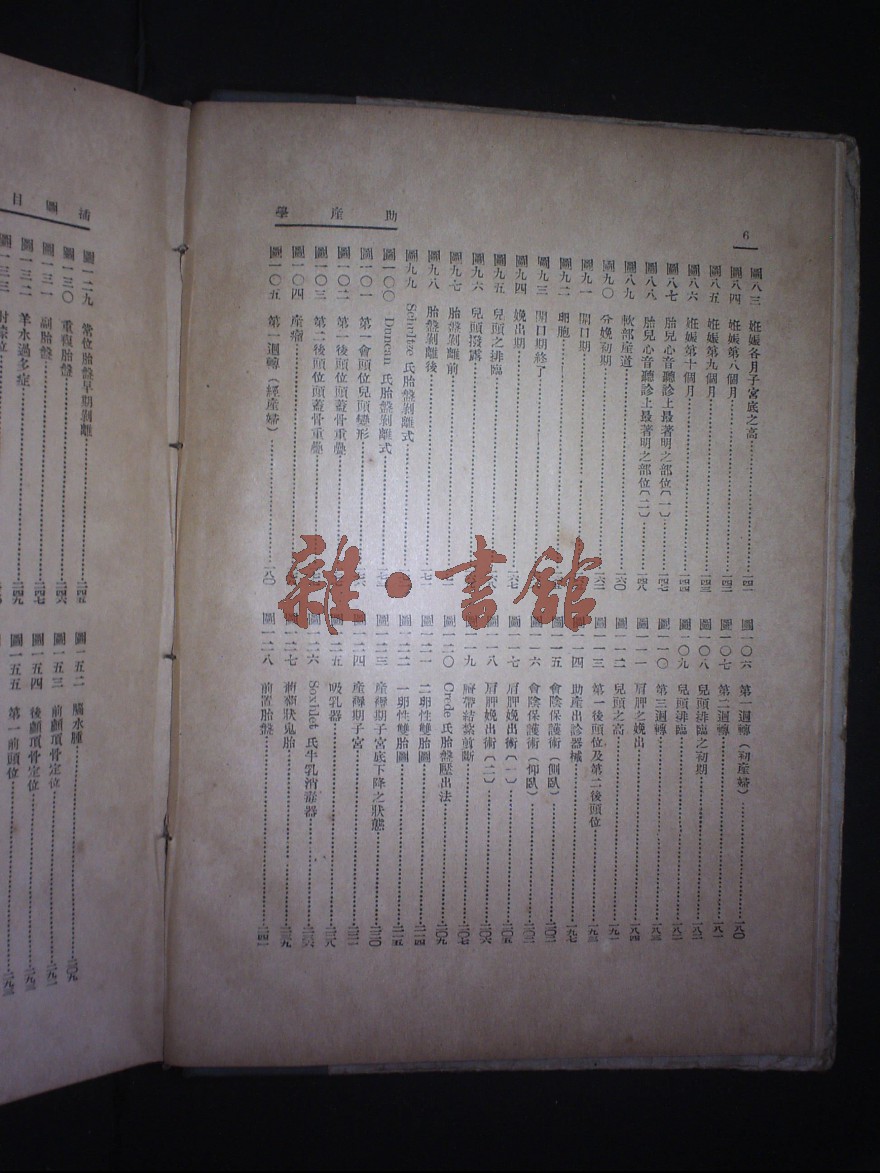 助產學
6
圖八三 妊娠各月子宮底之高 一四二
圖八四 妊娠第八個月 一四二
圖八五 妊娠第九個月 一四三
圖八六 妊娠第十個月 一四四
圖八七 胎兒心音聽診上最著明之部位〔一〕 一四七
圖八八 胎兒心音聽診上最著明之部位〔二〕 一四八
圖八九 軟部産道 一六〇
圖九〇 分娩初期 一六二
圖九一 開口期
圖九二 卵胞
圖九三 開口期終了
圖九四 娩出期
圖九五 兒頭之排臨
圖九六 兒頭撥露
圖九七 胎盤剝離前
圖九八 胎盤剝離後
圖九九 Schultze 氏胎盤剝離式
圖一〇〇 Duncan 氏胎盤剝離式
圖一〇一 第一會頭位兒頭變形
圖一〇二 第一後頭位頭蓋骨重疊
圖一〇三 第二後頭位頭蓋骨重疊
圖一〇四 産瘤
圖一〇五 第一迴轉(經産婦) 一八〇
圖一〇六 第一迴轉(初産婦) 一八〇
圖一〇七 第二迴轉 一八一
圖一〇八 兒頭排臨之初期 一八二
圖一〇九 兒頭排臨 一八二
圖一一〇 第三迴轉 一八三
圖一一一 肩胛之娩出 一八四
圖一一二 兒頭之高 一九一
圖一一三 第一後頭位及第二後頭位 一九三
圖一一四 助産出診器械 一九七
圖一一五 會陰保護術(側臥) 二〇二
圖一一六 會陰保護術(仰臥) 二〇三
圖一一七 肩胛娩出術(一) 二〇五
圖一一八 肩胛娩出術(二) 二〇六
圖一一九 臍帶結紮剪斷 二〇七
圖一二〇 Crede 氏胎盤壓出法 二〇九
圖一二一 二卵性雙胎圖 二一四
圖一二二 一卵性雙胎圖 二一五
圖一二三 産褥期子宮底下降之狀態 二二〇
圖一二四 産褥期子宮 二二一
圖一二五 吸乳器 二二八
圖一二六 Soxhlet 氏牛乳消毒器 二三六
圖一二七 葡萄狀鬼胎 二三九
圖一二八 前置胎盤 二四一
插圖目
圖一二九 常位胎盤早期剝離 二四五
圖一三〇 重複胎盤 二四六
圖一三一 副胎盤 二四七
圖一三二 羊水過多症 二四九
圖一三三
圖一五二 腦水腫 二〇九
圖一五三 前顱頂骨定位 二九一
圖一五四 後顱頂骨定位 二九二
圖一五五 第一前頭位 二九三
雜·書館